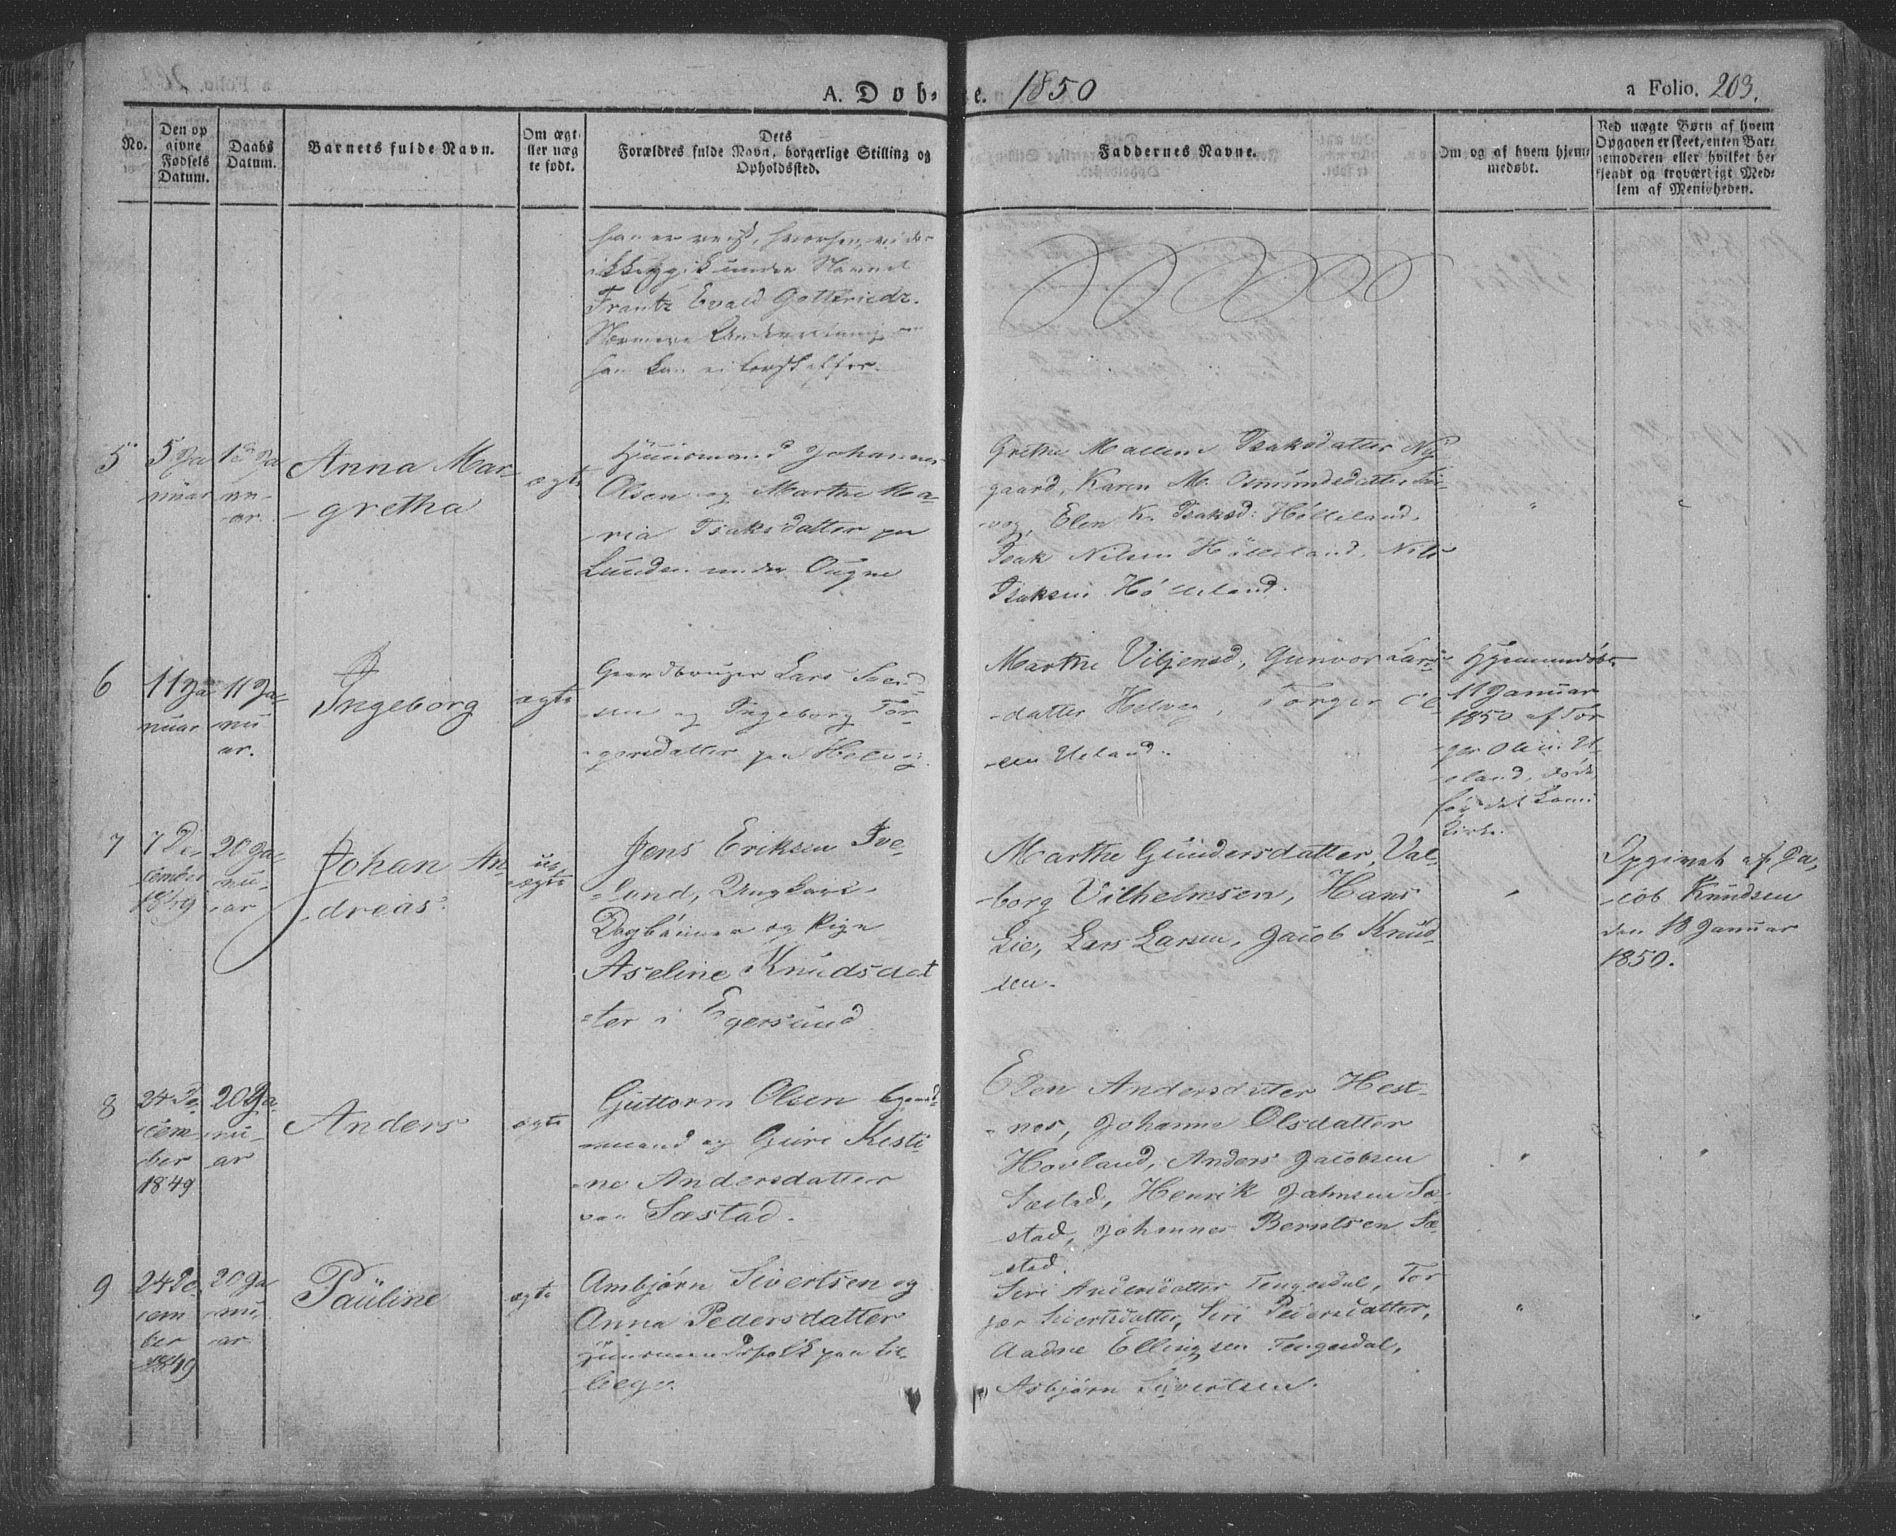 A. Døb- e. 1850
a Folio. 203.
No.
Den op
givne
Fødsels
Datum.
Daabs
Datum.
Barnets fulde Navn.
Om ægt
eller uæg
te født.
Dets
Forældres fulde Navn, borgerlige Stilling og
Opholdssted.
Faddernes Navne.
Om og af hvem hjem-
medøbt.
Ved uægte Børn af hvem
Opgaven er skeet, enten Bar-
nemoderen eller hvilket be-
kjendt og troværdigt Med-
lem af Menigheden.
han er reist,
ikke gik under Navnet
Frantz Evald Gottfriedr.
Nærmere Underretning om
ham kan ei
5
5 Ja
nuar
Ja
nu-
ar.
Anna Mar-
gretha
ægte
Huusmand Johannes
Olsen og Marthe Ma-
ria Isaksdatter paa
Lunden under Ougne
Grethe Malene Isaksdatter Ny
gaard, Karen M. Osmundsdatter
Elen K. Isaksd: Hölleland,
Isak Nilsen Hölleland, Nils
Isaksen Hölleland.
"
"
6
11 Ja
nuar
11 Ja-
nu
ar.
Ingeborg
ægte
Gaardbruger Lars Svend-
sen og Ingeborg Tor-
gersdatter paa Helvig.
Marthe Viljensd, Gunvor Lars-
datter Helvig, Torger Ol-
sen Ueland.
Hjemmedöbt
11 Januar
1850 af Tor
ger Olsen U-
eland, döde
för det kom i
Kirke.
7
7 De-
cember
1849
20 Ja-
nu-
ar
Johan An-
dreas.
u-
ægte
Jens Eriksen Tve-
Lund, Ungkarl,
og Pige
Aseline Knudsdat
ter i Egersund
Marthe Gundersdatter, Val-
borg Vilhelmsen, Hans
Lie, Lars Larsen, Jacob Knud-
sen.
"
Opgivet af Ja-
cob Knudsen
den 18 Januar
1850.
8
24 De-
cem
ber
1849
20 Ja-
nu-
ar
Anders
ægte
Guttorm Olsen Gaard-
mand og Guri Kisti-
ne Andersdatter
paa Sæstad.
Elen Andersdatter Hest-
nes, Johanne Olsdatter
Hovland, Anders Jacobsen
Sæstad, Henrik Jahnsen Sæ-
stad, Johannes Berntsen Sæ-
stad.
"
"
9
24 De
cem
ber
1849
20 Ja
nu-
ar
Pauline
ægte
Ambjørn Sivertsen og
Anna Pedersdatter
Huusmandsfolk paa
Siri Andersdatter Tengesdal, Tor
jær Sivertsdatter, Siri Pedersdatter,
Aadne Ellingsen Tengesdal,
Asbjørn Sivertsen.
"
"